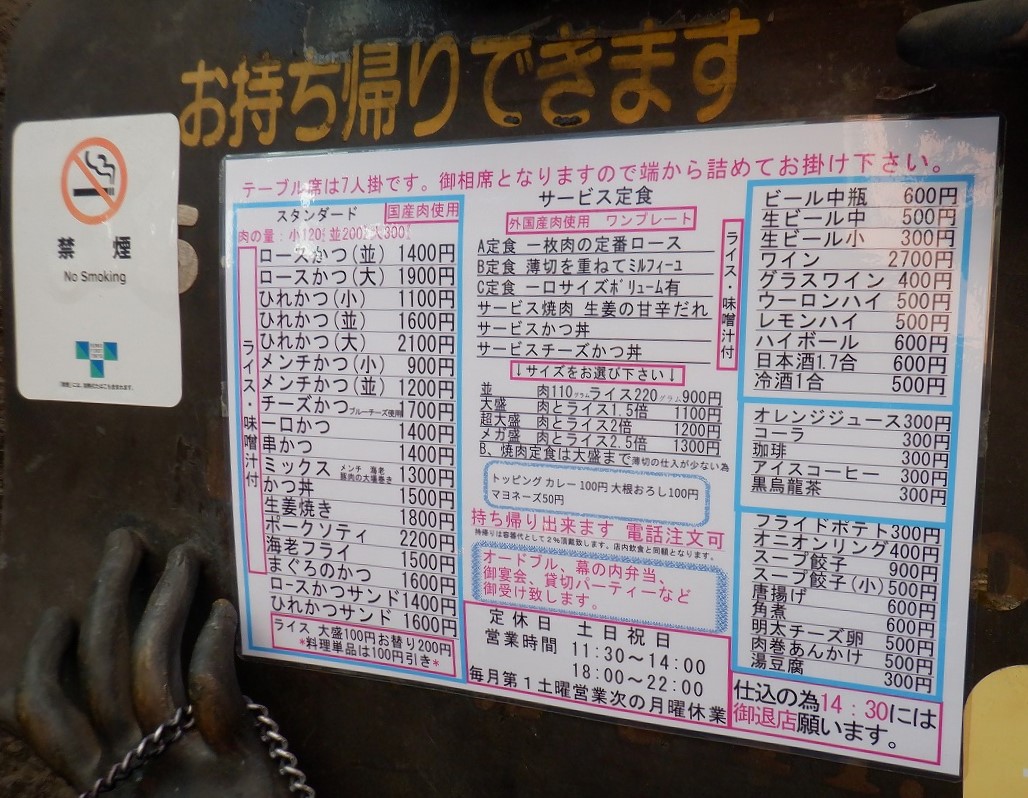 お持ち帰りできます
禁煙
No Smoking
テーブル席は7人掛です。御相席となりますので端から詰めてお掛け下さい。
スタンダード
国産肉使用
肉の量：小120㌘並200㌘大300㌘
ロースかつ(並) 1400円
ロースかつ(大) 1900円
ひれかつ(小) 1100円
ひれかつ(並) 1600円
ひれかつ(大) 2100円
メンチかつ(小) 900円
メンチかつ(並) 1200円
チーズかつ ブルーチーズ使用 1700円
一口かつ 1400円
串かつ 1400円
ミックス メンチ 海老 豚肉の大場巻き 1300円
かつ丼 1500円
生姜焼き 1800円
ポークソティ 2200円
海老フライ 1500円
まぐろのかつ 1600円
ロースかつサンド 1400円
ひれかつサンド 1600円
ライス・味噌汁付
ライス 大盛100円お替り200円
*料理単品は100円引き*
サービス定食
外国産肉使用 ワンプレート
A定食 一枚肉の定番ロース
B定食 薄切を重ねてﾐﾙﾌｨｰﾕ
C定食 一口サイズﾎﾞﾘｭｰﾑ有
サービス焼肉 生姜の甘辛だれ
サービスかつ丼
サービスチーズかつ丼
ライス・味噌汁付
↓サイズをお選び下さい↓
並 肉110グラムライス220グラム900円
大盛 肉とライス1.5倍 1100円
超大盛 肉とライス2倍 1200円
メガ盛 肉とライス2.5倍 1300円
B、焼肉定食は大盛まで薄切の仕入が少ない為
トッピング カレー100円 大根おろし100円
マヨネーズ50円
持ち帰り出来ます 電話注文可
持帰りは容器代として2%頂戴致します。店内飲食と同額となります。
オードブル、幕の内弁当、
御宴会、貸切パーティーなど
御受け致します。
定休日 土日祝日
営業時間 11:30～14:00
18:00～22:00
毎月第1土曜営業次の月曜休業
ビール中瓶 600円
生ビール中 500円
生ビール小 300円
ワイン 2700円
グラスワイン 400円
ウーロンハイ 500円
レモンハイ 500円
ハイボール 600円
日本酒1.7合 600円
冷酒1合 500円
オレンジジュース300円
コーラ 300円
珈琲 300円
アイスコーヒー 300円
黒烏龍茶 300円
フライドポテト300円
オニオンリング400円
スープ餃子 900円
スープ餃子(小)500円
唐揚げ 600円
角煮 600円
明太チーズ卵 500円
肉巻あんかけ 500円
湯豆腐 300円
仕込の為14：30には
御退店願います。